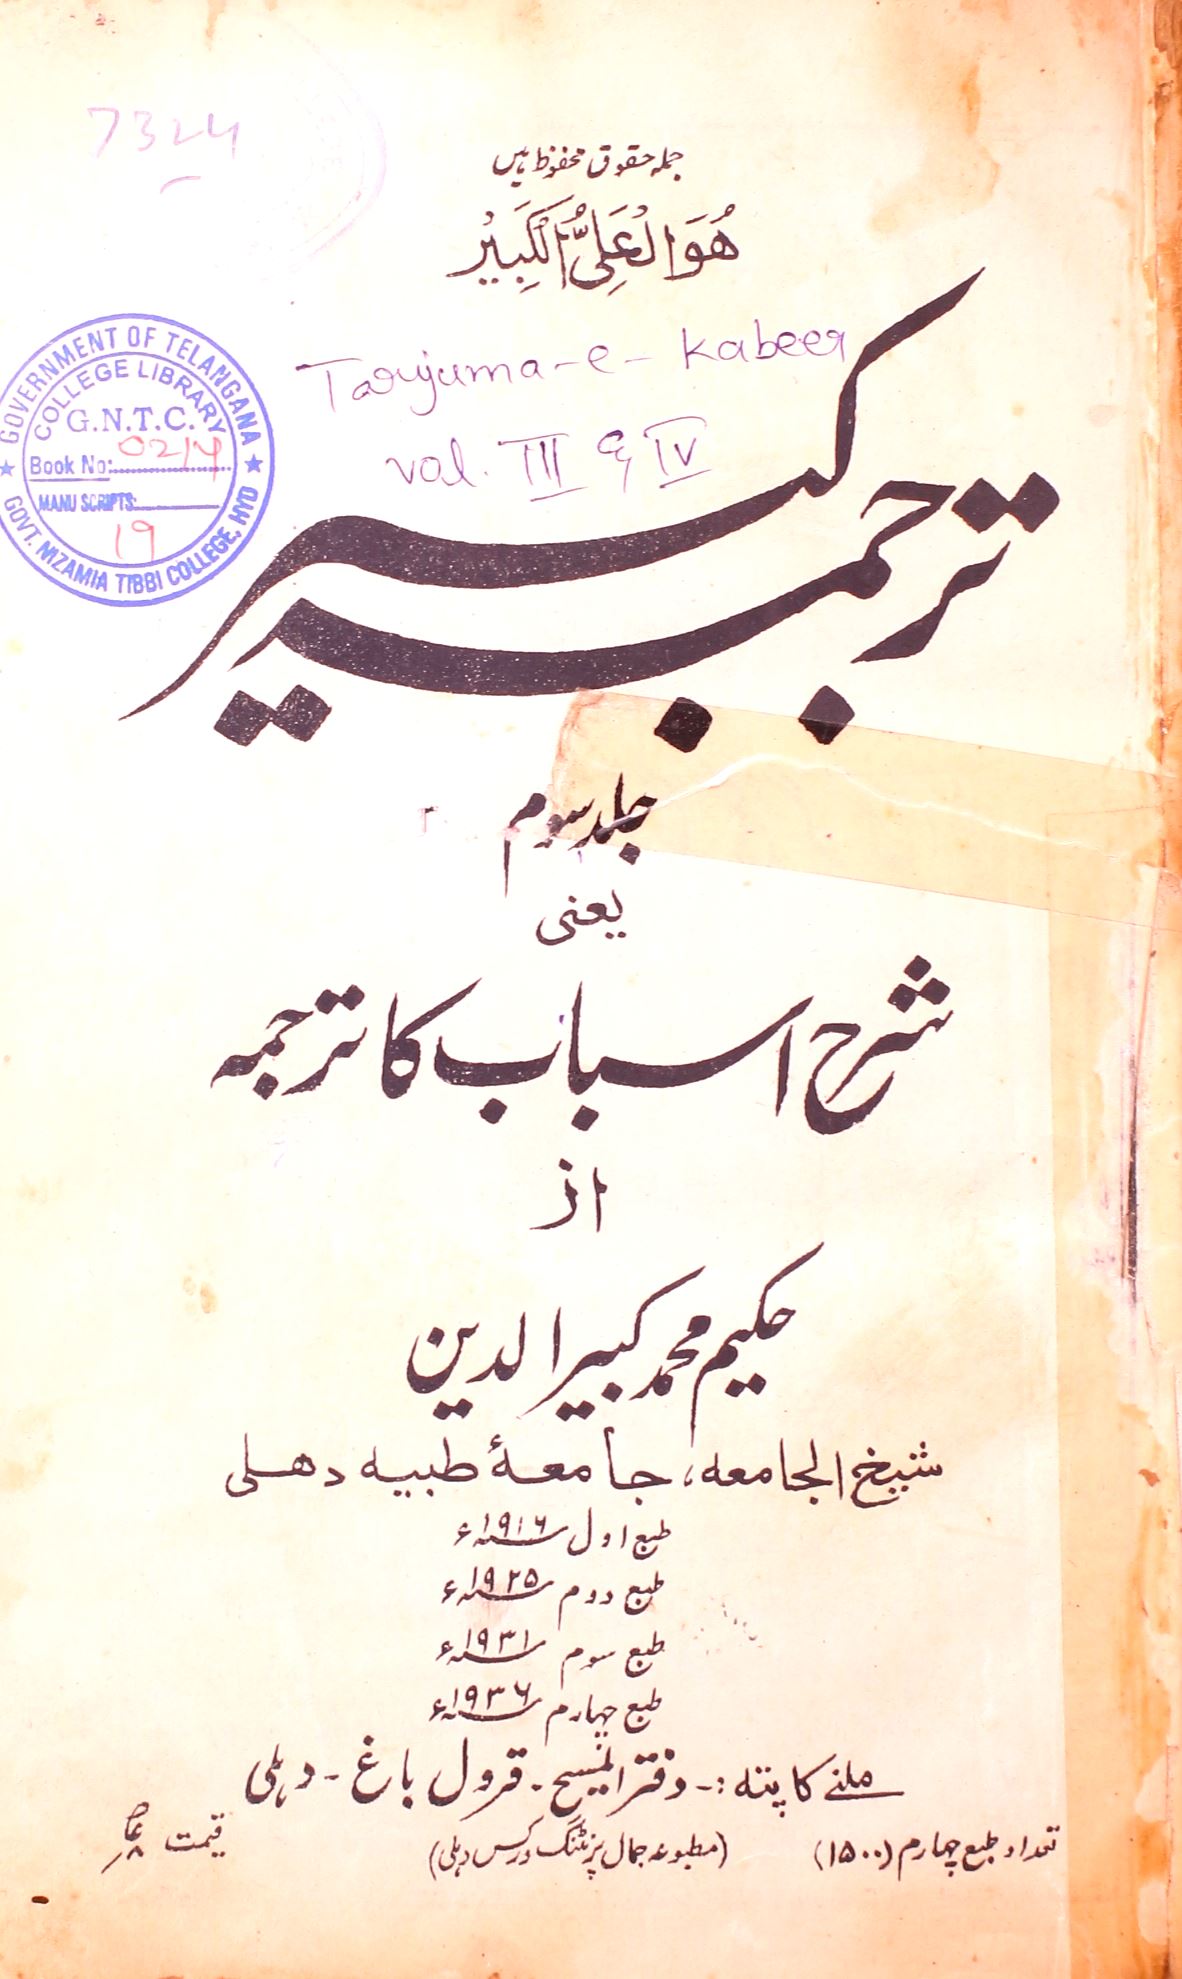 7324
جملہ حقوق محفوظ ہیں
هُوَالْعَلِیُّ الْکَبِیْرُ
Tarjuma-e-Kabeer
vol. III & IV
GOVERNMENT OF TELANGANA
COLLEGE LIBRARY
G.N.T.C.
Book No: 0214
MANU SCRIPTS:
19
GOVT. NIZAMIA TIBBI COLLEGE, HYD
ترجمہ کبیر
جلد سوم
یعنی
شرح اسباب کا ترجمہ
از
حکیم محمد کبیر الدین
شیخ الجامعہ، جامعۂ طبیہ دھلی
طبع اول ۱۹۱۶ء
طبع دوم ۱۹۲۵ء
طبع سوم ۱۹۳۱ء
طبع چہارم ۱۹۳۶ء
ملنے کا پتہ :۔ دفتر المسیح ۔ قرول باغ ۔ دہلی
تعداد طبع چہارم (۱۵۰۰) (مطبوعہ جمال پرنٹنگ ورکس دہلی) قیمت